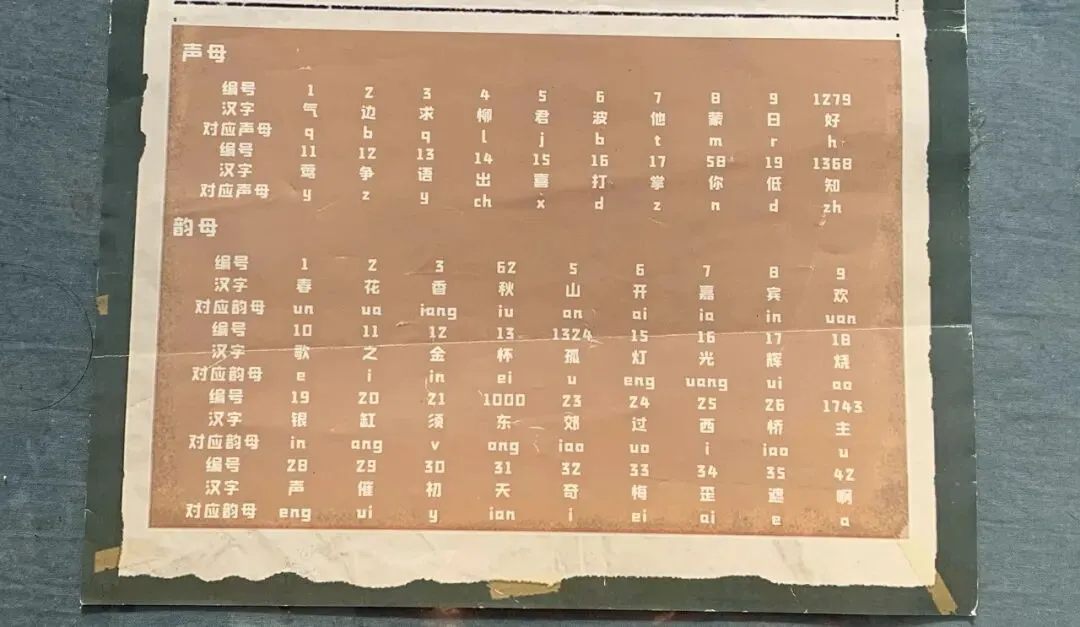 声母
编号 1 2 3 4 5 6 7 8 9 1279
汉字 气 边 求 柳 君 波 他 蒙 日 好
对应声母 q b q l j b t m r h
编号 11 12 13 14 15 16 17 58 19 1368
汉字 莺 争 语 出 喜 打 掌 你 低 知
对应声母 y z y ch x d z n d zh
韵母
编号 1 2 3 62 5 6 7 8 9
汉字 春 花 香 秋 山 开 嘉 宾 欢
对应韵母 un ua iang iu an ai ia in uan
编号 10 11 12 13 1324 15 16 17 18
汉字 歌 之 金 杯 孤 灯 光 辉 烧
对应韵母 e i in ei u eng uang ui ao
编号 19 20 21 1000 23 24 25 26 1743
汉字 银 缸 须 东 郊 过 西 桥 主
对应韵母 in ang v ong iao uo i iao u
编号 28 29 30 31 32 33 34 35 42
汉字 声 催 初 天 奇 梅 歪 遮 啊
对应韵母 eng ui y ian i ei ai e a